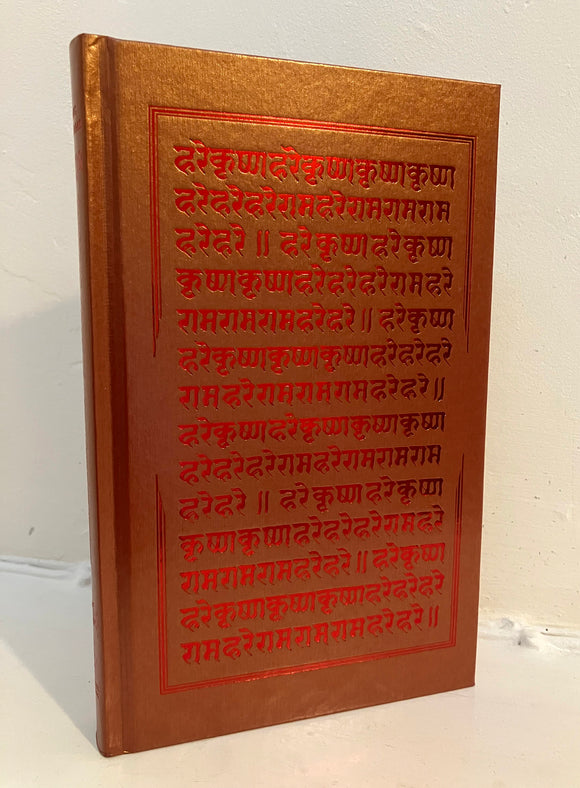 हरेकृष्णहरेकृष्णकृष्णकृष्ण
हरेहरेहरेरामहरेरामरामराम
हरेहरे ॥ हरेकृष्णहरेकृष्ण
कृष्णकृष्णहरेहरेहरेरामहरे
रामरामरामहरेहरे॥ हरेकृष्ण
हरेकृष्णकृष्णकृष्णहरेहरेहरे
रामहरेरामरामरामहरेहरे॥
हरेकृष्णहरेकृष्णकृष्णकृष्ण
हरेहरेहरेरामहरेरामरामराम
हरेहरे ॥ हरेकृष्णहरेकृष्ण
कृष्णकृष्णहरेहरेहरेरामहरे
रामरामरामहरेहरे॥ हरेकृष्ण
हरेकृष्णकृष्णकृष्णहरेहरेहरे
रामहरेरामरामरामहरेहरे॥